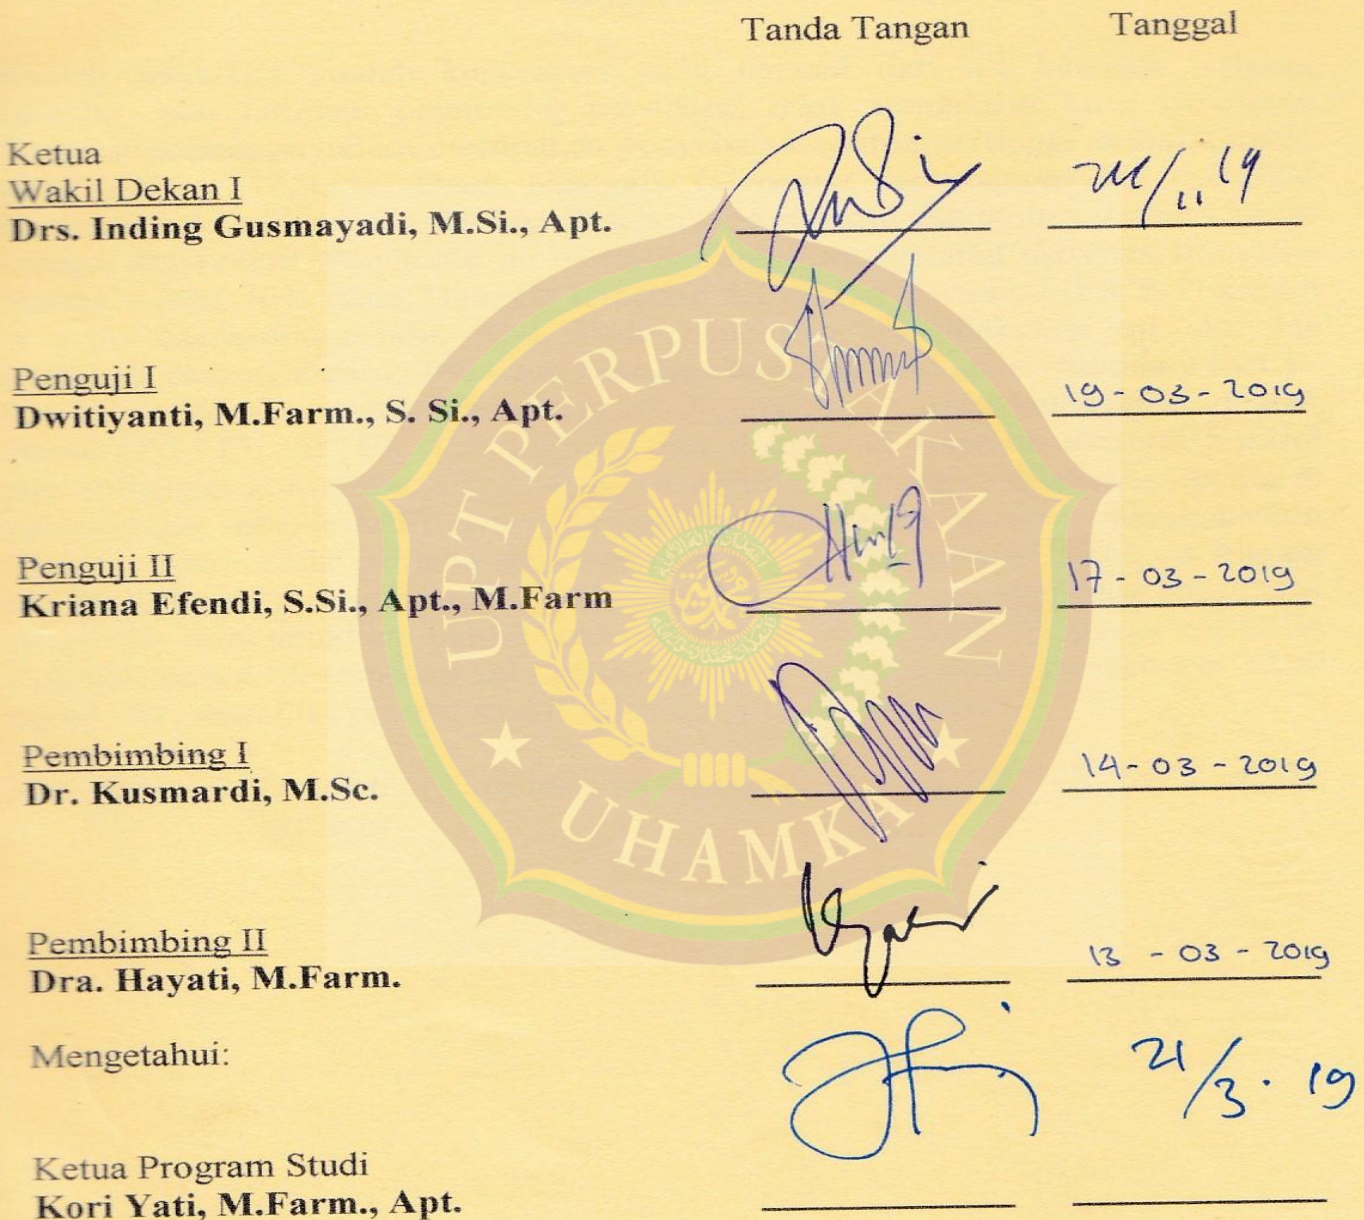 Tanda Tangan Tanggal
Ketua
Wakil Dekan I
Drs. Inding Gusmayadi, M.Si., Apt.
Penguji I
Dwitiyanti, M.Farm., S. Si., Apt. 19-03-2019
Penguji II
Kriana Efendi, S.Si., Apt., M.Farm 17-03-2019
Pembimbing I
Dr. Kusmardi, M.Sc. 14-03-2019
Pembimbing II
Dra. Hayati, M.Farm. 13-03-2019
Mengetahui: 21/3.19
Ketua Program Studi
Kori Yati, M.Farm., Apt.
UPT PERPUSTAKAAN
UHAMKA